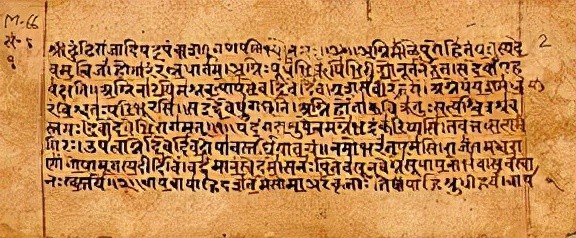 M-66
2
अग्निमीळेपुरोहितंयज्ञस्यदे
वमृत्विजं॥होतारंरत्नधातमं॥अग्निःपूर्वेभिर्ऋषिभिरीड्योनूतनैरुत॥सदेवाँएह
वक्षति॥अग्निनारयिमश्नवत्पोषमेवदिवेदिवे॥यशसंवीरवत्तमं॥अग्नेयंयज्ञमध्व
रंविश्वतःपरिभूरसि॥सइद्देवेषुगच्छति॥अग्निर्होताकविक्रतुःसत्यश्चित्रश्रव
स्तमः॥देवोदेवेभिरागमत्॥१॥यदंगदाशुषेत्वमग्नेभद्रंकरिष्यसि॥तवेत्तत्सत्यमं
गिरः॥उपत्वाग्नेदिवेदिवेदोषावस्तर्धियावयं॥नमोभरंतएमसि॥राजंतमध्वरा
णांगोपामृतस्यदीदिविं॥वर्धमानंस्वेदमे॥सनःपितेवसूनवेग्नेसूपायनोभव॥सचस्वा
नःस्वस्तये॥२॥वायवायाहिदर्शतेमेसोमाअरंकृताः॥तेषांपाहिश्रुधीहवं॥वाय